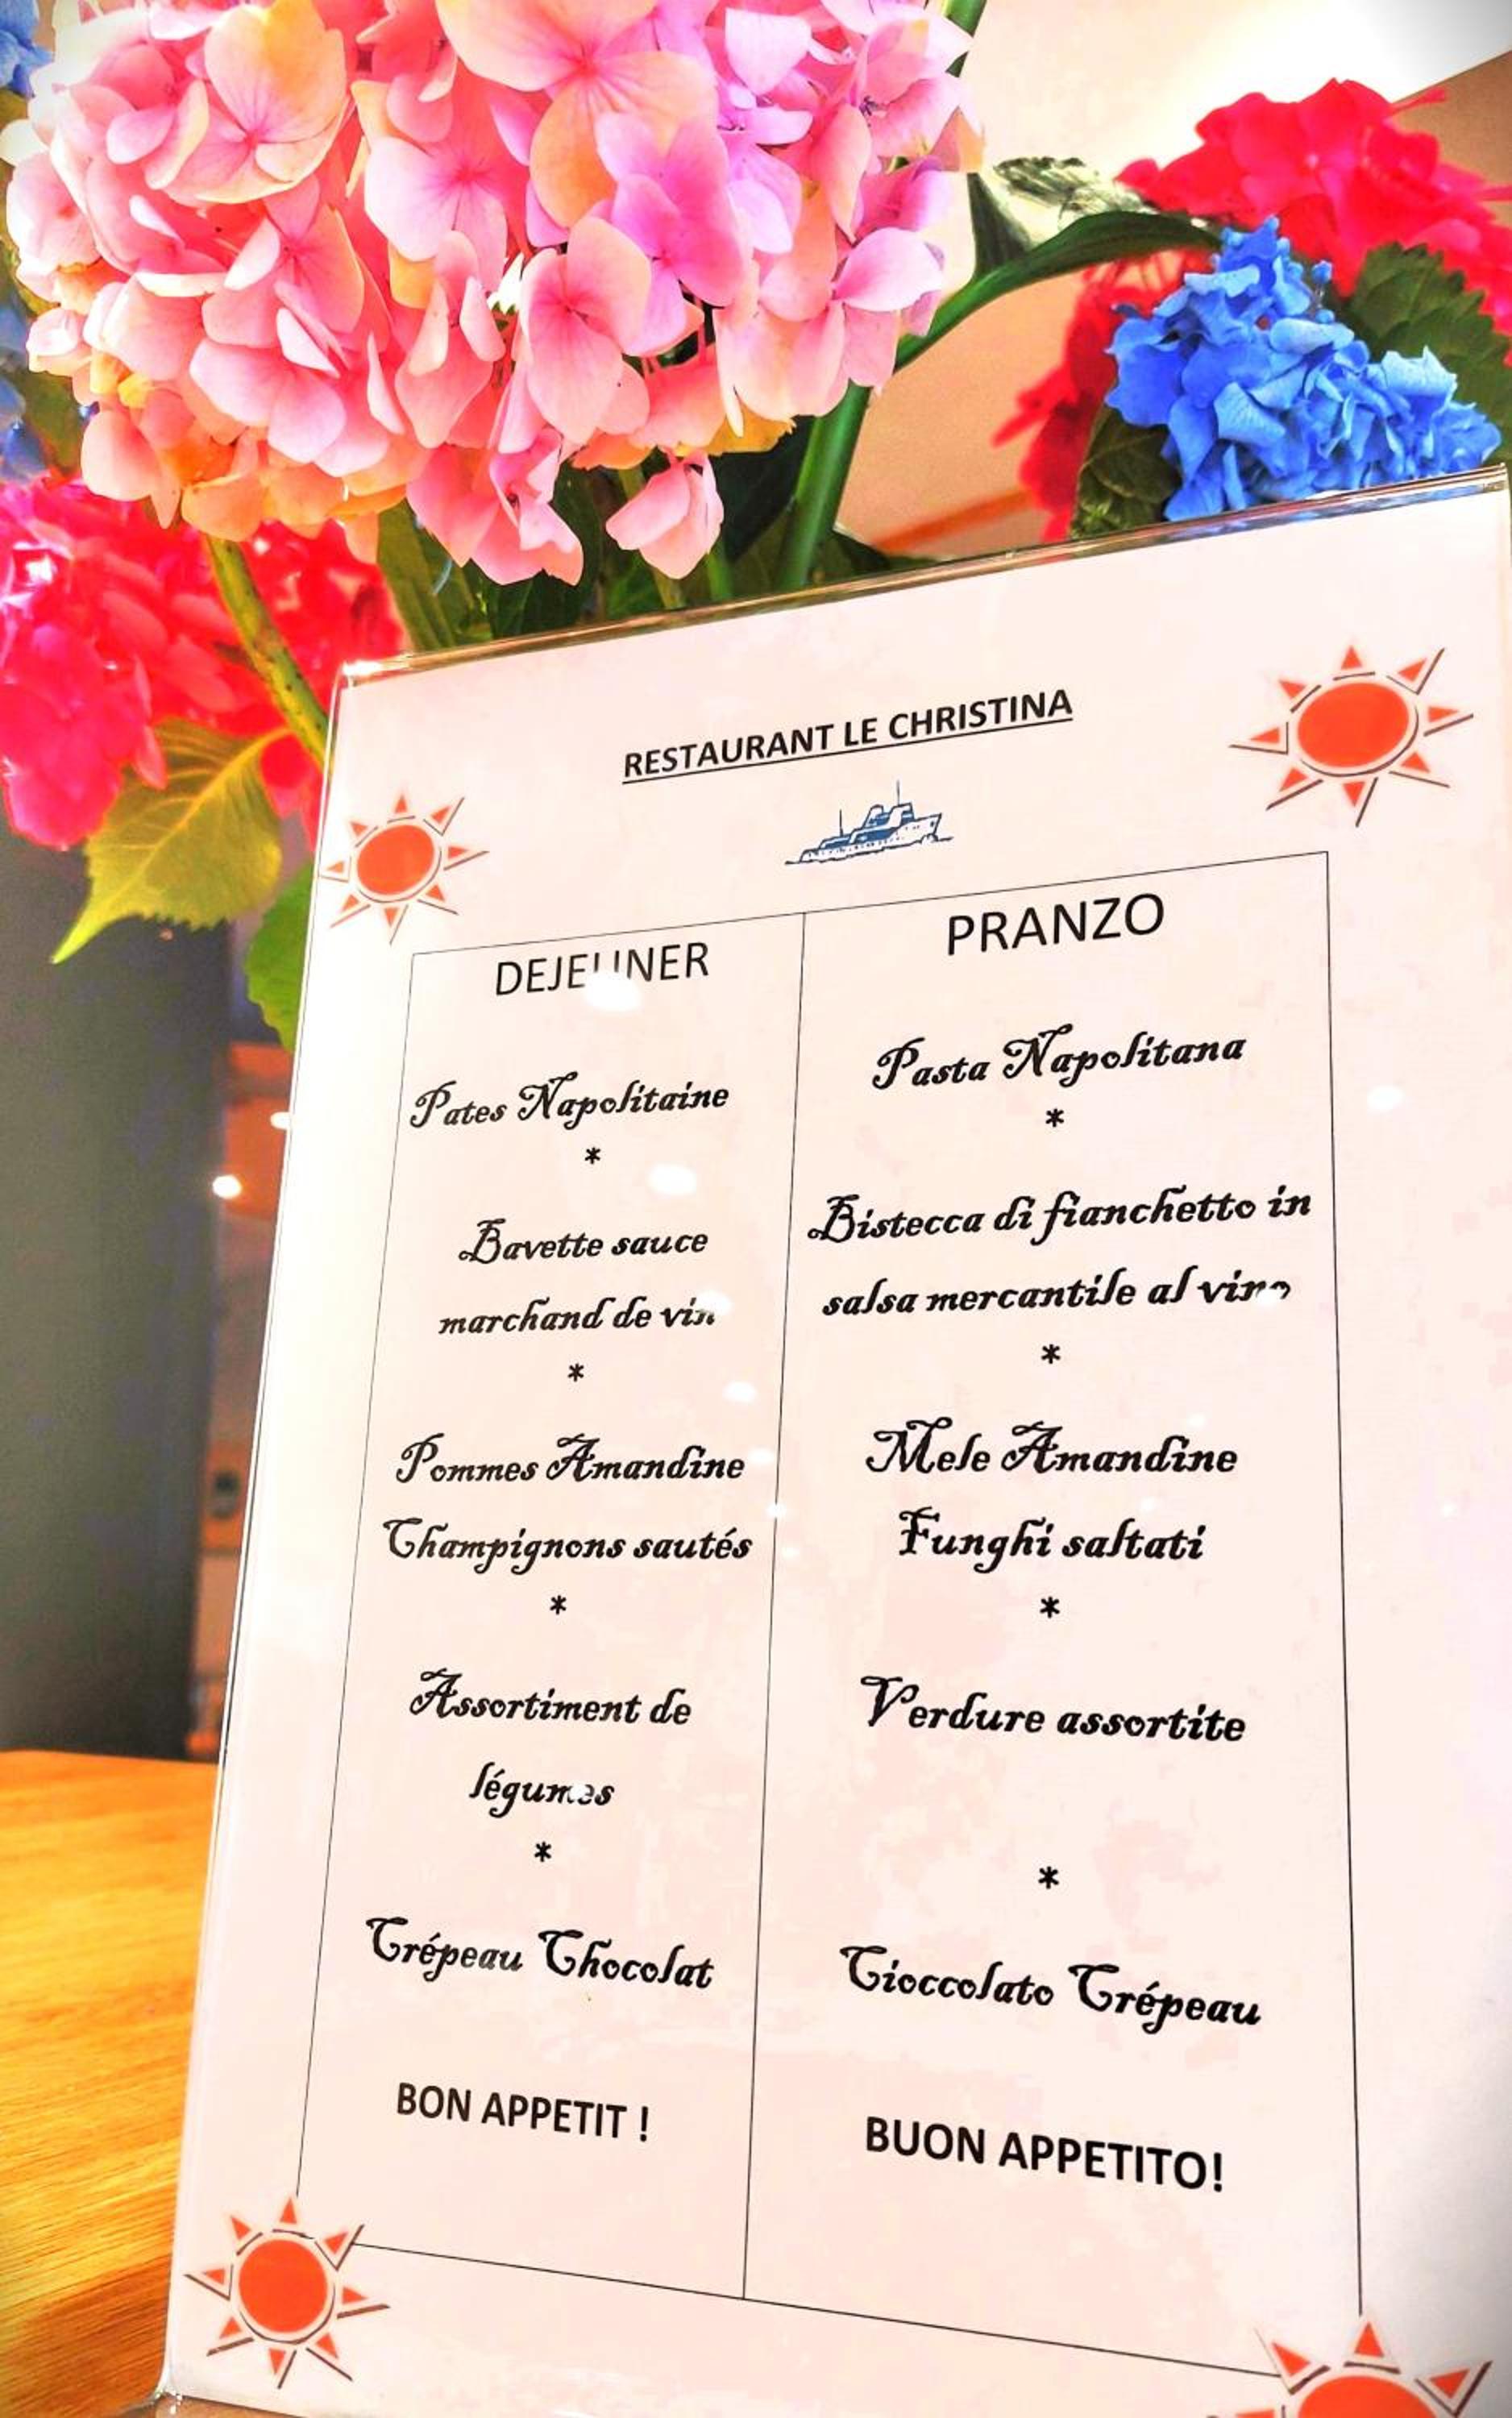 RESTAURANT LE CHRISTINA
DEJEUNER
Pates Napolitaine
*
Bavette sauce
marchand de vin
*
Pommes Amandine
Champignons sautés
*
Assortiment de
légumes
*
Crépeau Chocolat
BON APPETIT !
PRANZO
Pasta Napolitana
*
Bistecca di fianchetto in
salsa mercantile al vino
*
Mele Amandine
Funghi saltati
*
Verdure assortite
*
Cioccolato Crépeau
BUON APPETITO!